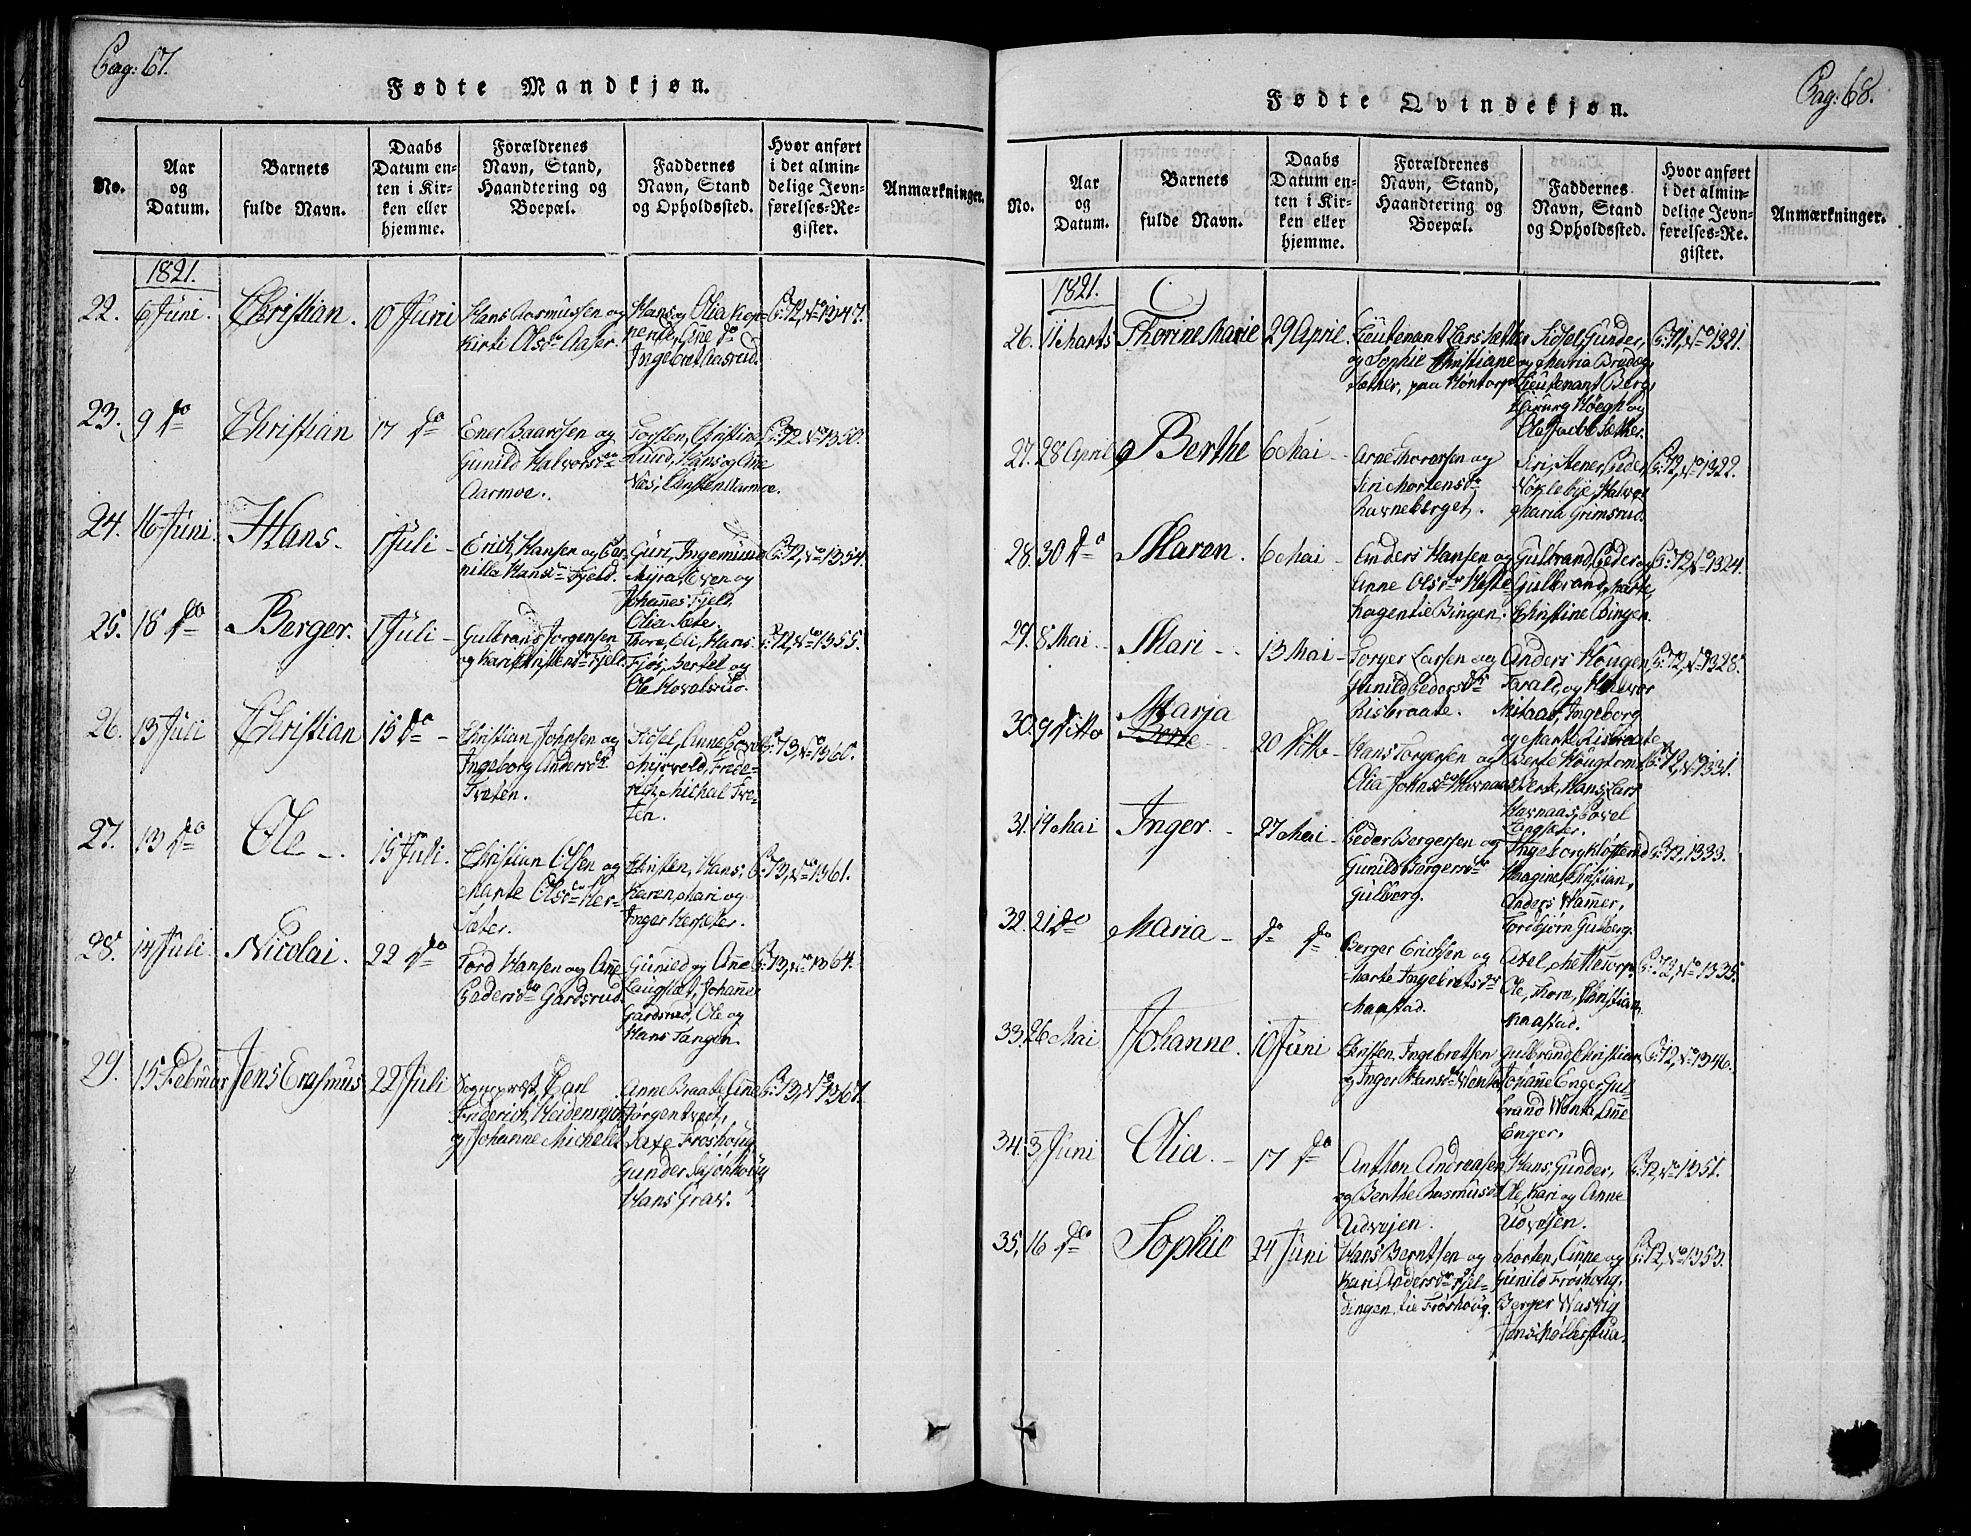 Pag: 67.
Fødte Mandkjøn.
No.
Aar og Datum.
Barnets fulde Navn.
Daabs Datum enten i Kirken eller hjemme.
Forældrenes Navn, Stand, Haandtering og Boepæl.
Faddernes Navn, Stand og Opholdssted.
Hvor anført i det almindelige Jevnførelses-Register.
Anmærkninger.
1821.
22. 6 Juni. Christian. 10 Juni
Hans Rasmussen og
Kirti Olsda Aaser.
Hans og Olia
Anne do
Ingebret
P: 12, No 1347.
23. 9 do Christian 17 do
Ener Baardsen og
Gunild Halvorsda
Aarmoe.
Torsten, Christine
Lund, Hans og Anne
Næs,
P: 12 No 1350.
24. 16 Juni. Hans. 1 Juli
Erich Hansen og Per-
nille Hansda Fjeld.
Guri, Ingemund
Myra, Even og
Johannes Fjeld,
Olia Sæte.
P: 12, No 1354.
25. 18 do Berger. 1 Juli
Gulbrand Jorgensen
og Kari Christensda Fjeld.
Thore, Eli, Hans
Fjøs, Bertel og
Ole Hovelsrud.
P: 12, No 1355.
26. 13 Juli Christian 15 do
Christian Johnsen og
Ingeborg Andersda
Træten.
Sidsel, Anne
Myrvold, Frede-
rich, Michal Træ-
ten.
P: 13, No 1360.
27. 13 do Ole 15 Juli.
Christian Olsen og
Marte Olsda Her-
sæter.
Christen, Hans,
Karen, Mari og
Inger Hersæter.
P: 13, No 1361.
28. 14 Juli Nicolai. 22 do
Tord Hansen og Anne
Pedersda Gardsrud.
Gunild og Anne
Laugslæt, Johanne
Gardsrud, Ole og
Hans Tangen.
P: 13, No 1364.
29. 15 Februar Jens Erasmus 22 Juli
Sognepræst, Carl
Friderich
og Johanne Michelet
Anne Braate, Anne
Jørgentveet,
Saxe Frøshoug
Gunder
Hans Grav.
P: 13, No 1367.
Pag: 68.
Fødte Qvindekjøn.
No.
Aar og Datum.
Barnets fulde Navn.
Daabs Datum enten i Kirken eller hjemme.
Forældrenes Navn, Stand, Haandtering og Boepæl.
Faddernes Navn, Stand og Opholdssted.
Hvor anført i det almindelige Jevnførelses-Register.
Anmærkninger.
1821.
26. 11 Marts Thorine Marie 29 April.
Lieutenant Lars Sæther
og Sophie Christiane
Sæther, paa Hontorp
Sidsel, Gunder,
og Maria
Lieutenant Berg,
Chirurg Höegh og
Ole Jacob Sæther.
P: 11, No 1321.
27. 28 April Berthe 6 Mai
Arne Thoresen og
Siri Mortensda
Ravneberget.
Siri, Stener, Peder
Nöklebÿe, Halvor
Maria Grimsrud.
P: 12, No 1322.
28. 30 do Maren. 6 Mai
Anders Hansen og
Anne Olsda Hofte
hagen tie Bingen.
Gulbrand, Peder og
Gulbrand, Marte,
Christine Bingen.
P: 12, No 1324.
29. 8 Mai Mari 13 Mai
Torger Larsen og
Gunild Pedersda
Risbraate.
Anders Hougen
Tarald, og Halvor
Mitaas, Ingeborg
og Marte Risbraate
P: 12, No 1328.
30. 9 ditto Marja
Berte 20 ditto
Hans Torgersen og
Olia Johnsda Havnaas
Berte, Hans, Lars
Havnaas, Povel
Langsæter.
P: 12, No 1331.
31. 19 Mai Inger. 27 Mai
Peder Bergersen og
Gunild Borgersda
Gulberg.
Ingeborg
Haagine, Christian,
Anders Hamer,
Tordbjørn Gulberg.
P: 12, 1333.
32. 21 do Maria do do
Berger Erichsen og
Marte Ingebretsda
Maastad.
Axel, Mette Torp
Ole, Thore, Christian
Maastad.
P: 12, No 1335.
33. 26 Mai Johanne. 10 Juni
Christen Ingebretsen
og Inger Hansda
Gulbrand, Christian
Johanne Enger, Gul-
brand Anne
Enger.
P: 12, No 1346.
34. 3 Juni Olia. 17 do
Anthon Andreasen
og Berthe Rasmusda
Udvøjen.
Hans, Gunder,
Ole, Kari og Anne
Udvøjen.
P: 12, No 1351.
35. 16 do Sophie 24 Juni
Hans Berntsen og
Kari Andersda Fjel-
dingen tie Frøshoug.
Morten, Anne og
Gunild Frøshoug,
Berger Wasvig
Jens
P: 12, No 1353.